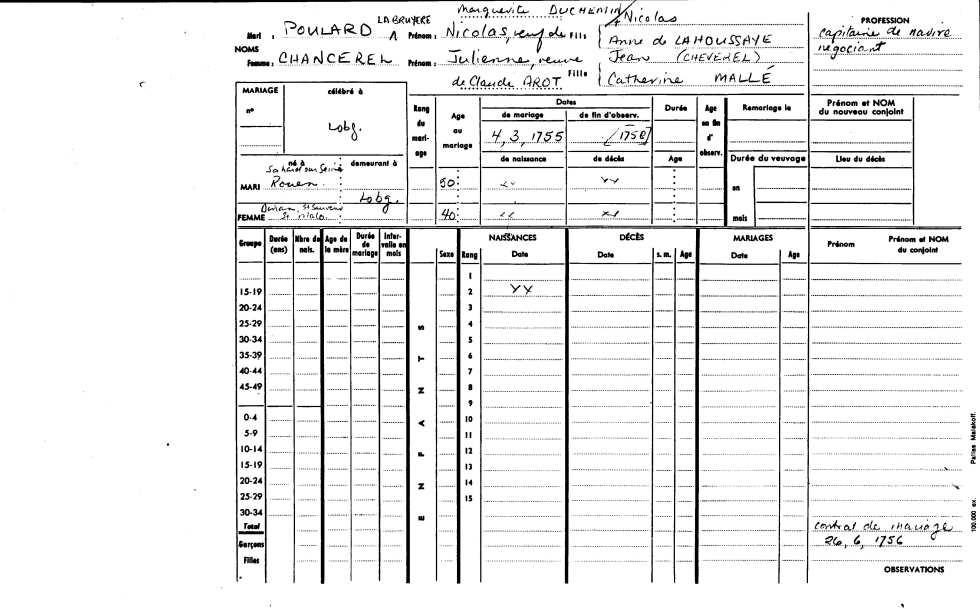 Marguerite DUCHEMIN
Mari : POULARD LA BRUYERE Prénom : Nicolas, veuf de Fils Nicolas
Anne de LAHOUSSAYE
NOMS
Femme : CHANCEREL Prénom : Julienne, veuve de Claude AROT Fille Jean (CHEVEREL)
Catherine MALLÉ
PROFESSION
capitaine de navire
négociant
MARIAGE
n°
célébré à
Lobg.
né à demeurant à
MARI Rouen. Lobg.
FEMME St Malo
Rang du mari-age
Age au mariage
50
40
Dates
de mariage de fin d'observ.
4, 3, 1755 [1758]
de naissance de décès
Durée
Age
Age en fin d' observ.
Remariage le
Durée du veuvage
en
mois
Prénom et NOM du nouveau conjoint
Lieu du décès
Groupe Durée (ans) Nbre de nais. Age de la mère Durée de mariage Inter-valle en mois
Sexe Rang
NAISSANCES Date
DÉCÈS Date s. m. Age
MARIAGES Date Age
Prénom Prénom et NOM du conjoint
ENFANTS
1
15-19 2
20-24 3
25-29 4
30-34 5
35-39 6
40-44 7
45-49 8
9
0-4 10
5-9 11
10-14 12
15-19 13
20-24 14
25-29 15
30-34
Total
Garçons
Filles
contrat de mariage
26, 6, 1756
OBSERVATIONS
100.000 ex. Pallas Malakoff.